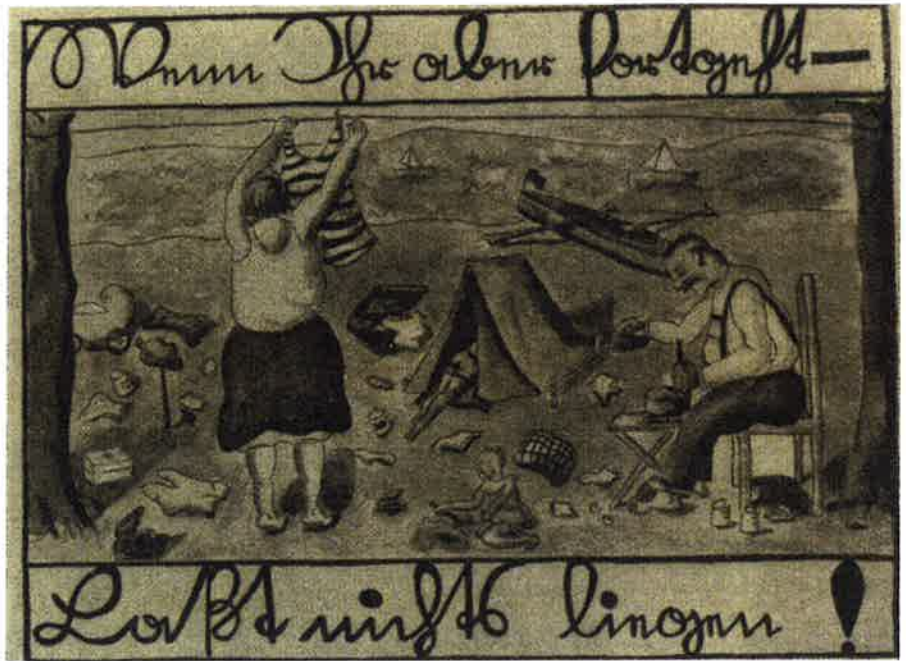 Wenn Ihr aber fortgeht —
Laßt nichts liegen!